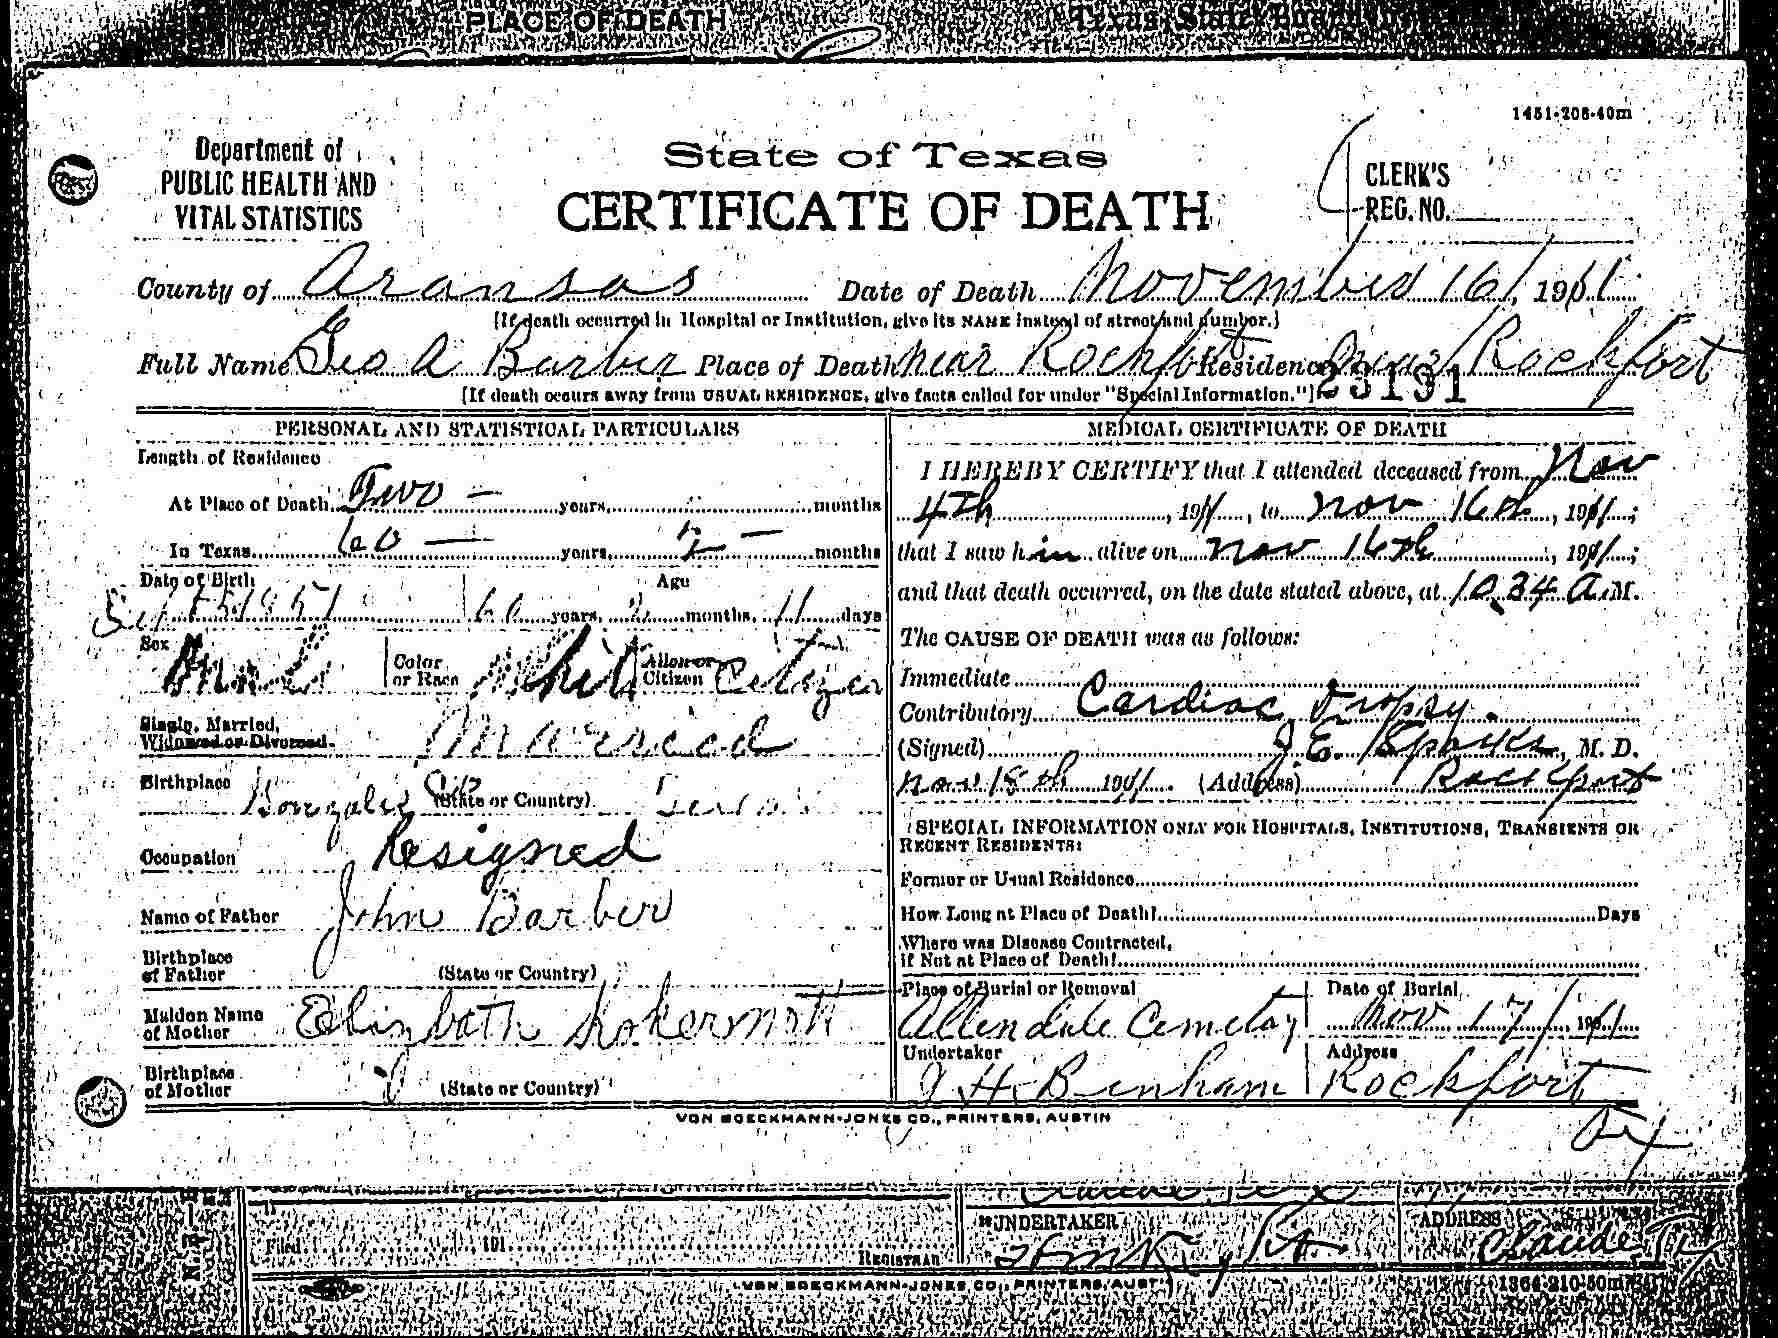 PLACE OF DEATH Texas State Board
1451-208-40m
Department of
PUBLIC HEALTH AND
VITAL STATISTICS
State of Texas
CERTIFICATE OF DEATH
CLERK'S
REG. NO.
County of Aransas Date of Death November 16, 1911
[If death occurred in Hospital or Institution, give its NAME instead of street and number.]
Full Name Geo A Barber Place of Death near Rockport Residence near Rockport
23191
[If death occurs away from USUAL RESIDENCE, give facts called for under "Special Information."]
PERSONAL AND STATISTICAL PARTICULARS
Length of Residence
At Place of Death Two — years, months
In Texas 60 — years, 2 — months
Date of Birth Age
Sept 5 1851 60 years, 2 months, 11 days
Sex Male Color or Race White Alien or Citizen Citizen
Single, Married,
Widowed or Divorced. Married
Birthplace Gonzales Co (State or Country) Texas
Occupation Resigned
Name of Father John Barber
Birthplace
of Father (State or Country)
Maiden Name
of Mother Elizabeth
Birthplace
of Mother (State or Country)
MEDICAL CERTIFICATE OF DEATH
I HEREBY CERTIFY that I attended deceased from Nov
4th, 1911, to Nov 16th, 1911;
that I saw him alive on Nov 16th, 1911;
and that death occurred, on the date stated above, at 10.34 A.M.
The CAUSE OF DEATH was as follows:
Immediate
Contributory Cardiac Dropsy.
(Signed) J. E. Sparks, M. D.
Nov 18th 1911. (Address) Rockport
SPECIAL INFORMATION ONLY FOR HOSPITALS, INSTITUTIONS, TRANSIENTS OR
RECENT RESIDENTS:
Former or Usual Residence
How Long at Place of Death? Days
Where was Disease Contracted,
if Not at Place of Death?
Place of Burial or Removal Date of Burial
Allendale Cemetay Nov 17, 1911
Undertaker Address
J H Benham Rockport
Tex
VON BOECKMANN-JONES CO., PRINTERS, AUSTIN
Filed 191
REGISTRAR
UNDERTAKER
ADDRESS
Claude Tex
VON BOECKMANN-JONES CO., PRINTERS, AUST